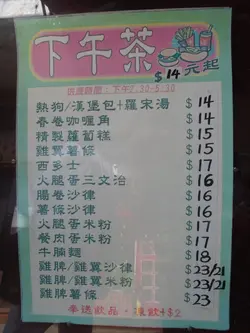 下午茶
$14元起
供應時間：下午2:30-5:30
熱狗/漢堡包+羅宋湯 $14
春卷咖喱角 $14
精製蘿蔔糕 $15
雞翼薯條 $15
西多士 $17
火腿蛋三文治 $16
腸卷沙律 $16
薯條沙律 $16
火腿蛋米粉 $17
餐肉蛋米粉 $17
牛腩麵 $18
雞脾/雞翼沙律 $23/21
雞脾/雞翼米粉 $23/21
雞脾薯條 $23
奉送飲品。凍飲+$2